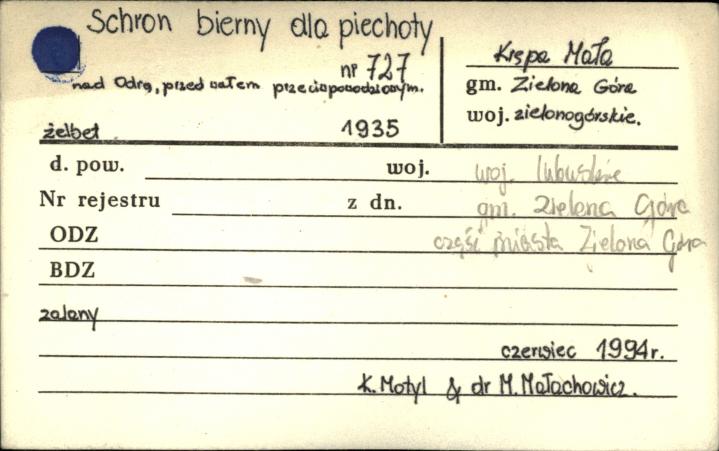 Schron bierny dla piechoty
nr 727
nad Odrą, przed wałem przeciwpowodziowym.
żelbet 1935
Krępa Mała
gm. Zielona Góra
woj. zielonogórskie.
d. pow. woj. woj. lubuskie
Nr rejestru z dn. gm. Zielona Góra
ODZ część miasta Zielona Góra
BDZ
zalany
czerwiec 1994r.
K. Motyl & dr M. Małachowicz.